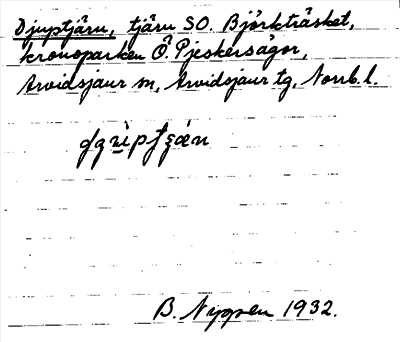 Djuptjärn, tjärn SO. Björkträsket,
kronoparken Ö. Pjeskersågor,
Arvidsjaur sn, Arvidsjaur tg, Norrb. l.
B. Nygren 1932.